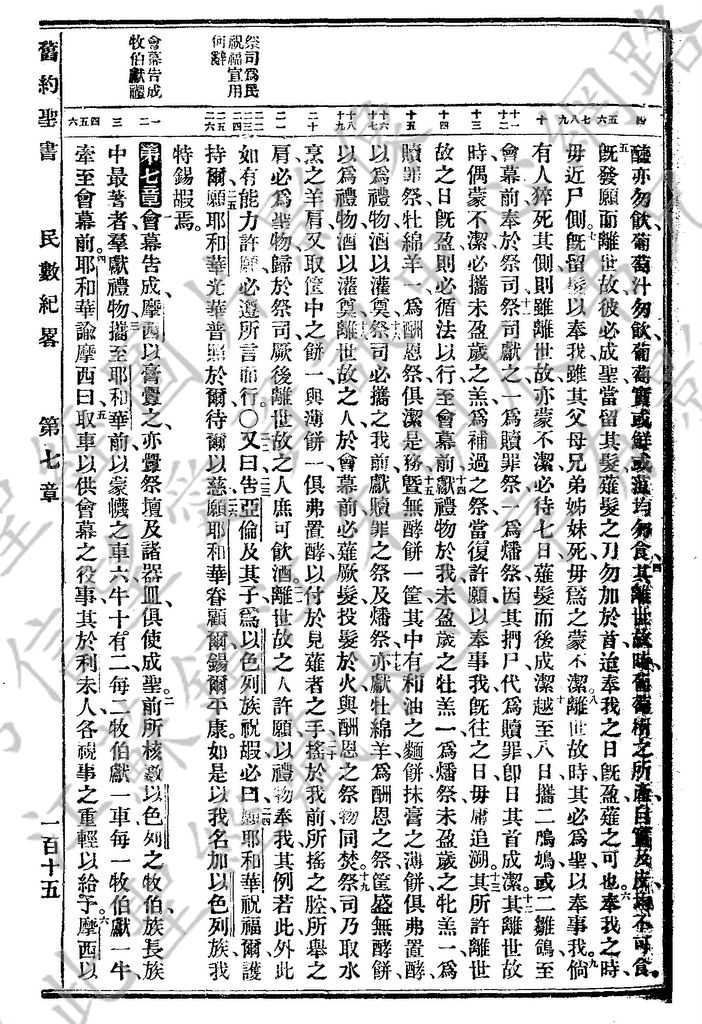 醯亦勿飲葡萄汁勿飲葡萄實或鮮或乾均勿食其離世故時葡萄樹之所產自實及皮均不可食
五既發願而離世故彼必成聖當留其髮薙髮之刀勿加於首迨奉我之日既盈薙之可也六奉我之時
毋近尸側七既留髮以奉我雖其父母兄弟姊妹死毋為之蒙不潔八離世故時其必為聖以奉事我九倘
有人猝死其側則雖離世故亦蒙不潔必待七日薙髮而後成潔十越至八日攜二鳲鳩或二雛鴿至
會幕前奉於祭司十一祭司獻之一為贖罪祭一為燔祭因其捫尸代為贖罪卽日其首成潔十二其離世故
時偶蒙不潔必攜未盈歲之羔為補過之祭當復許願以奉事我既往之日毋庸追溯十三其所許離世
故之日既盈則必循法以行至會幕前十四獻禮物於我未盈歲之牡羔一為燔祭未盈歲之牝羔一為
贖罪祭牡綿羊一為酬恩祭俱潔是務十五暨無酵餅一筐其中有和油之麵餅抹膏之薄餅俱弗置酵
以為禮物酒以灌奠十六祭司必攜之我前獻贖罪之祭及燔祭十七亦獻牡綿羊為酬恩之祭筐盛無酵餅
以為禮物酒以灌奠十八離世故之人於會幕前必薙厥髮投髮於火與酬恩之祭物同焚十九祭司乃取水
烹之羊肩又取筐中之餅一與薄餅一俱弗置酵以付於見薙者之手二十搖於我前所搖之腔所舉之
肩必為聖物歸於祭司厥後離世故之人庶可飲酒二一離世故之人許願以禮物奉我其例若此外此
如有能力許願必遵所言而行○二二又曰二三告亞倫及其子為以色列族祝嘏必曰二四願耶和華祝福爾護
持爾二五願耶和華光華普照於爾待爾以慈二六願耶和華眷顧爾錫爾平康如是以我名加以色列族我
特錫嘏焉
第七章 會幕告成摩西以膏釁之亦釁祭壇及諸器皿俱使成聖二前所核數以色列之牧伯族長族
中最著者羣獻禮物三攜至耶和華前以蒙幭之車六牛十有二每二牧伯獻一車每一牧伯獻一牛
牽至會幕前四耶和華諭摩西曰五取車以供會幕之役事其於利未人各視事之重輕以給予六摩西以
祭司為民
祝福宣用
何辭
會幕告成
牧伯獻禮
四
五六
七八九
十
十一十二
十三
十四
十五
十六十七
十八十九
二十
二一
二二二三二四二五二六
一二
三
四五六
舊約聖書
民數紀畧
第七章
一百十五